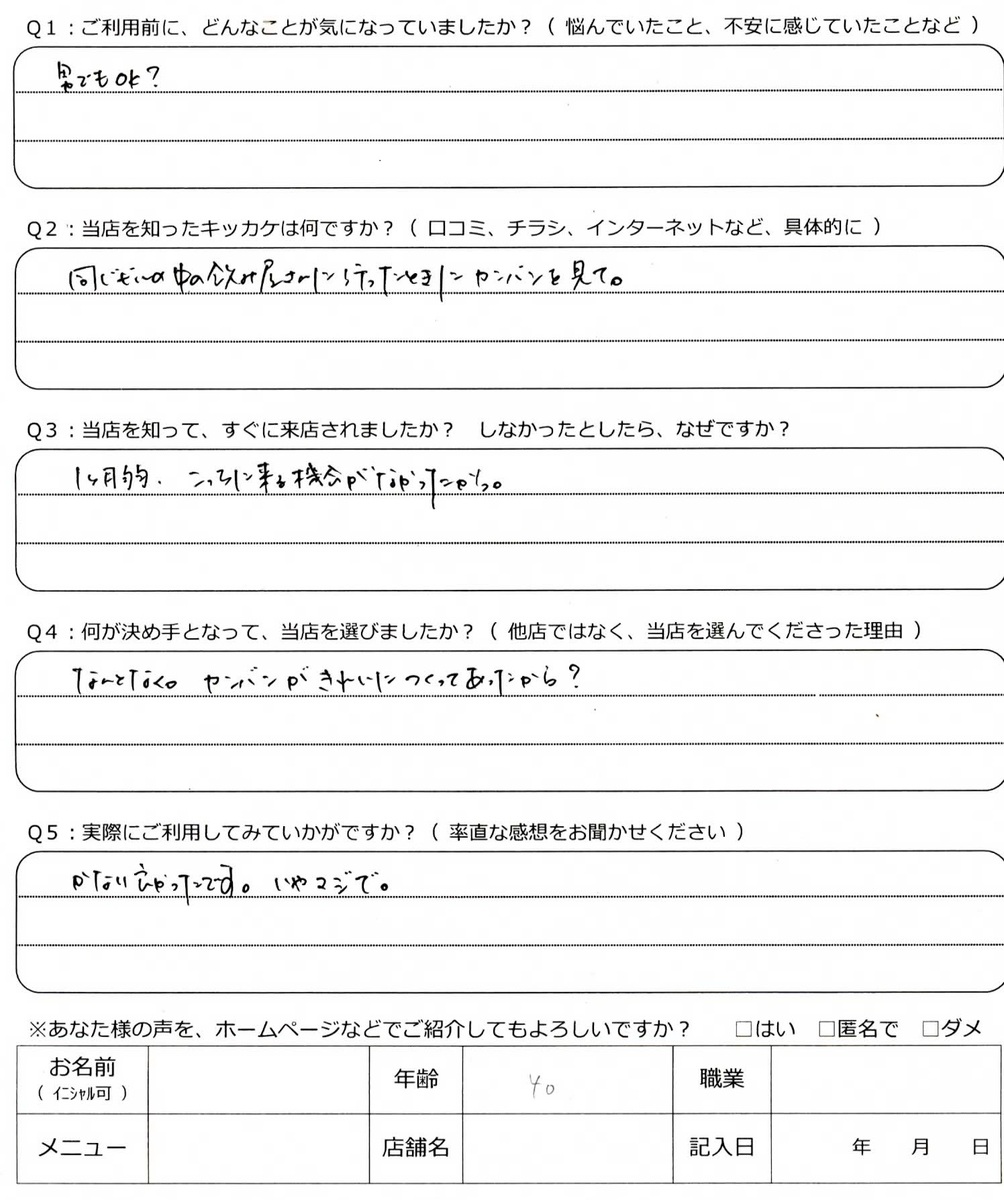 Q1：ご利用前に、どんなことが気になっていましたか？（ 悩んでいたこと、不安に感じていたことなど ）
男でもOK？
Q2：当店を知ったキッカケは何ですか？（ 口コミ、チラシ、インターネットなど、具体的に ）
同じビルの中の飲み屋さんに行ったときにカンバンを見て。
Q3：当店を知って、すぐに来店されましたか？　しなかったとしたら、なぜですか？
1ヶ月約. こっちに来る機会がなかったから。
Q4：何が決め手となって、当店を選びましたか？（ 他店ではなく、当店を選んでくださった理由 ）
なんとなく。 カンバンがきれいにつくってあったから？
Q5：実際にご利用してみていかがですか？（ 率直な感想をお聞かせください ）
かなり良かったです。 いやマジで。
※あなた様の声を、ホームページなどでご紹介してもよろしいですか？　□はい　□匿名で　□ダメ
お名前 年齢 40 職業
（ ｲﾆｼｬﾙ可 ）
メニュー 店舗名 記入日 年 月 日